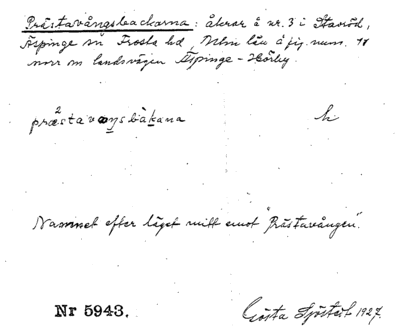 Prästavångsbackarna: åkrar å nr. 3 i Stavröd,
Äspinge sn Frosta hd, Mlm län å jig. num. 18
norr om landsvägen Äspinge - Hörby.
2
præstavɑŋsbakana h
Namnet efter läget mitt emot "Prästavången".
Nr 5943. Gösta Sjöstedt 1927.